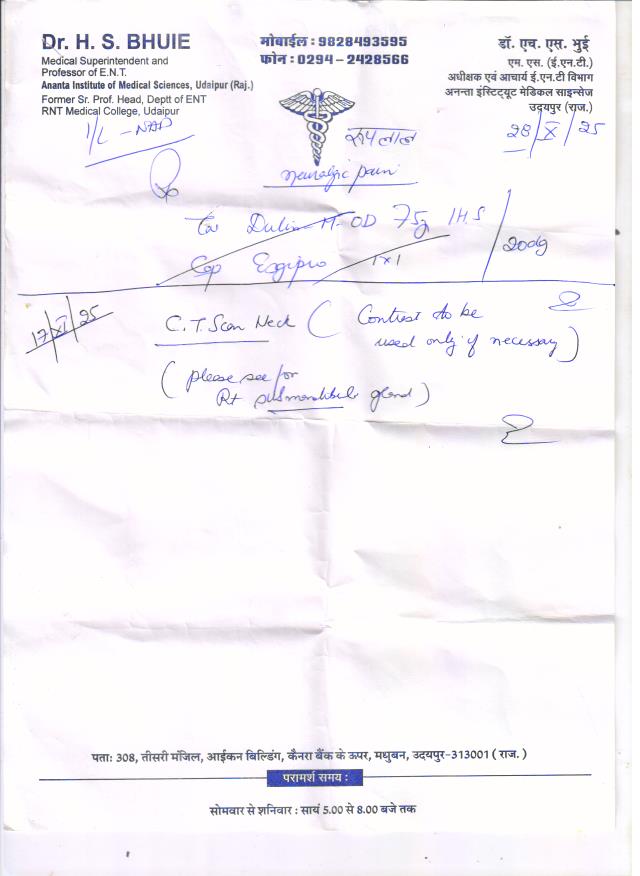 Dr. H. S. BHUIE
Medical Superintendent and
Professor of E.N.T.
Ananta Institute of Medical Sciences, Udaipur (Raj.)
Former Sr. Prof. Head, Deptt of ENT
RNT Medical College, Udaipur
मोबाईल : 9828493595
फोन : 0294 – 2428566
डॉ. एच. एस. भुई
एम. एस. (ई.एन.टी.)
अधीक्षक एवं आचार्य ई.एन.टी विभाग
अनन्ता इंस्टिट्यूट मेडिकल साइन्सेज
उदयपुर (राज.)
I/L - NAD
रूपलाल
28/X/25
Neuralgic pain
OD 75g 1H.S
Cap 1x1
17/XI/25
C.T. Scan Neck ( Contrast to be
used only if necessary )
( please see for
Rt submandibular gland )
पता: 308, तीसरी मंजिल, आईकन बिल्डिंग, कैनरा बैंक के ऊपर, मधुबन, उदयपुर-313001 ( राज. )
परामर्श समय :
सोमवार से शनिवार : सायं 5.00 से 8.00 बजे तक